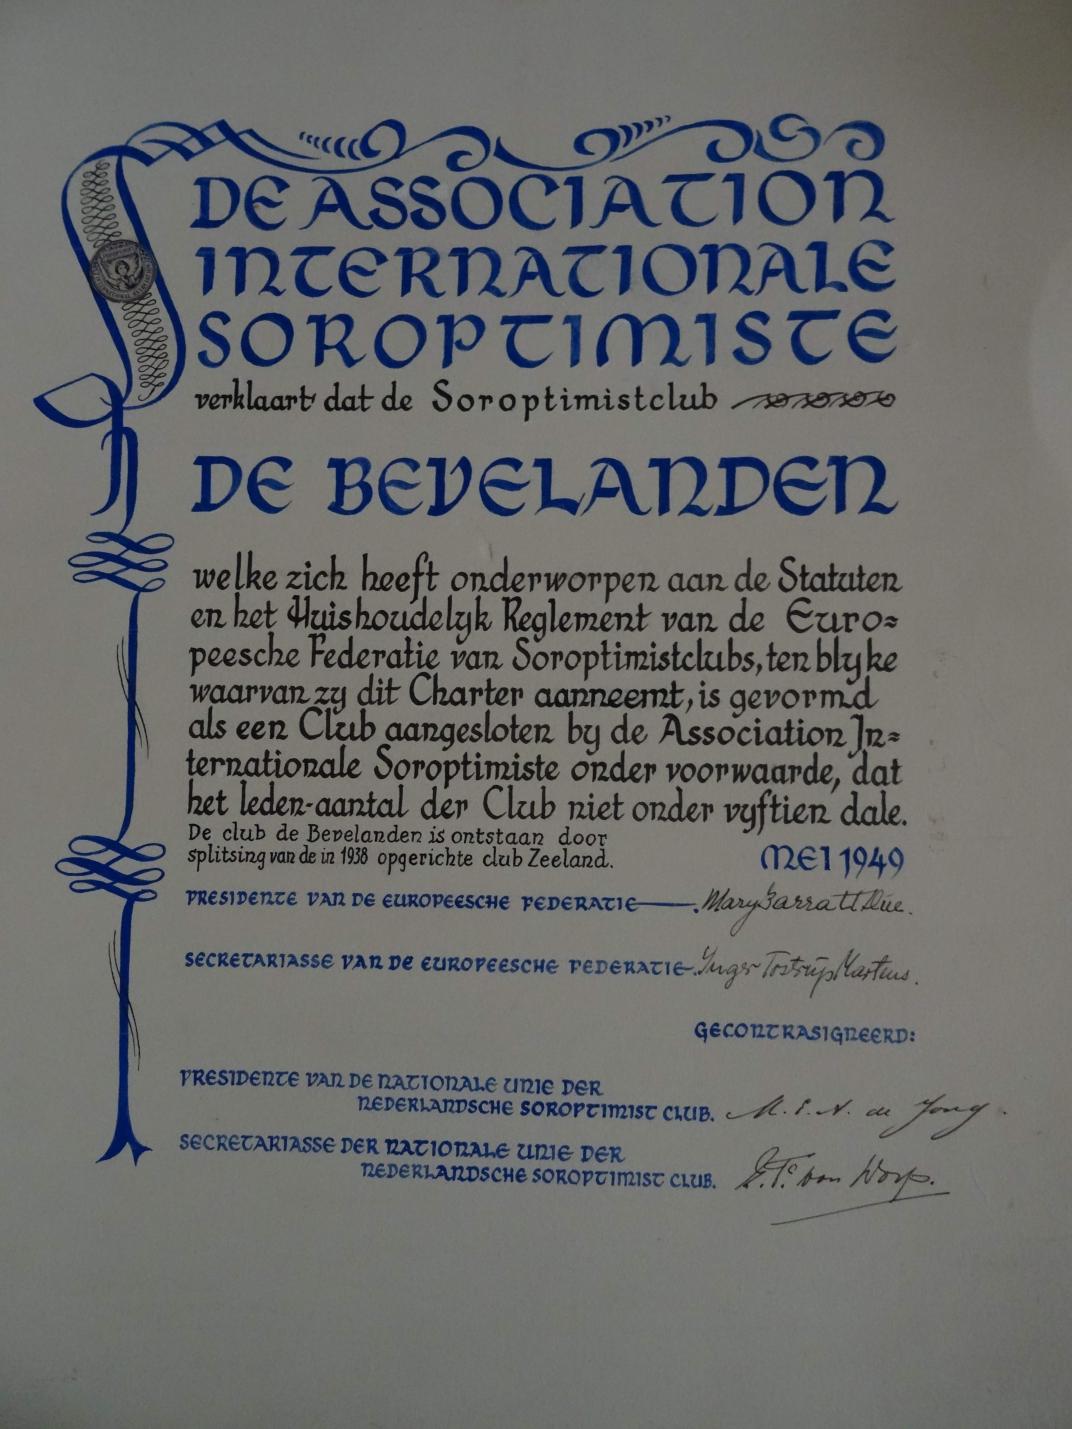 DE ASSOCIATION
INTERNATIONALE
SOROPTIMISTE
verklaart dat de Soroptimistclub
DE BEVELANDEN
welke zich heeft onderworpen aan de Statuten
en het Huishoudelyk Reglement van de Euro=
peesche Federatie van Soroptimistclubs, ten blyke
waarvan zy dit Charter aanneemt, is gevormd
als een Club aangesloten by de Association In=
ternationale Soroptimiste onder voorwaarde, dat
het leden-aantal der Club niet onder vyftien dale.
De club de Bevelanden is ontstaan door
splitsing van de in 1938 opgerichte club Zeeland.
MEI 1949
PRESIDENTE VAN DE EUROPEESCHE FEDERATIE Mary Garratt Due.
SECRETARIASSE VAN DE EUROPEESCHE FEDERATIE Inger Tostrup Martens.
GECONTRASIGNEERD:
PRESIDENTE VAN DE NATIONALE UNIE DER
NEDERLANDSCHE SOROPTIMIST CLUB. de Jong
SECRETARIASSE DER NATIONALE UNIE DER
NEDERLANDSCHE SOROPTIMIST CLUB. van Worp.